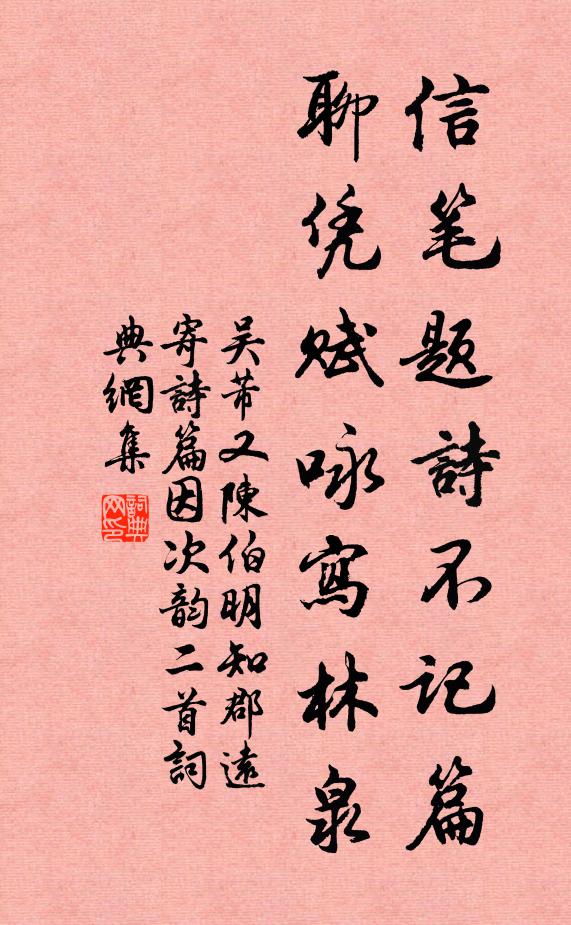 信笔题詩不记篇
聊凭赋咏寫林泉
吴芾又陳伯明知郡遠
寄詩篇因次韵二首詞
典網集
詞典
网印